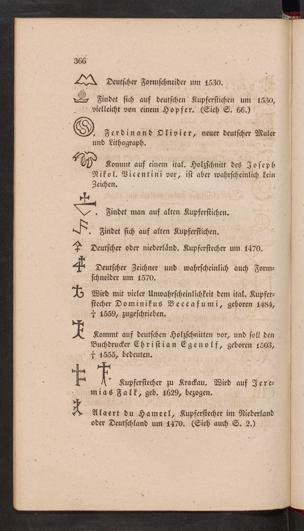 366
Deutscher Formschneider um 1530.
Findet sich auf deutschen Kupferstichen um 1530,
vielleicht von einem Hopfer. (Sieh S. 66.)
Ferdinand Olivier, neuer deutscher Maler
und Lithograph.
Kommt auf einem ital. Holzschnitt des Joseph
Nikol. Vicentini vor, ist aber wahrscheinlich kein
Zeichen.
Findet man auf alten Kupferstichen.
Findet sich auf alten Kupferstichen.
Deutscher oder niederländ. Kupferstecher um 1470.
Deutscher Zeichner und wahrscheinlich auch Form-
schneider um 1570.
Wird mit vieler Unwahrscheinlichkeit dem ital. Kupfer-
stecher Dominikus Beccafumi, geboren 1484,
† 1559, zugeschrieben.
Kommt auf deutschen Holzschnitten vor, und soll den
Buchdrucker Christian Egenolf, geboren 1503,
† 1555, bedeuten.
Kupferstecher zu Krackau. Wird auf Jere-
mias Falk, geb. 1629, bezogen.
Alaert du Hameel, Kupferstecher im Niederland
oder Deutschland um 1470. (Sieh auch S. 2.)